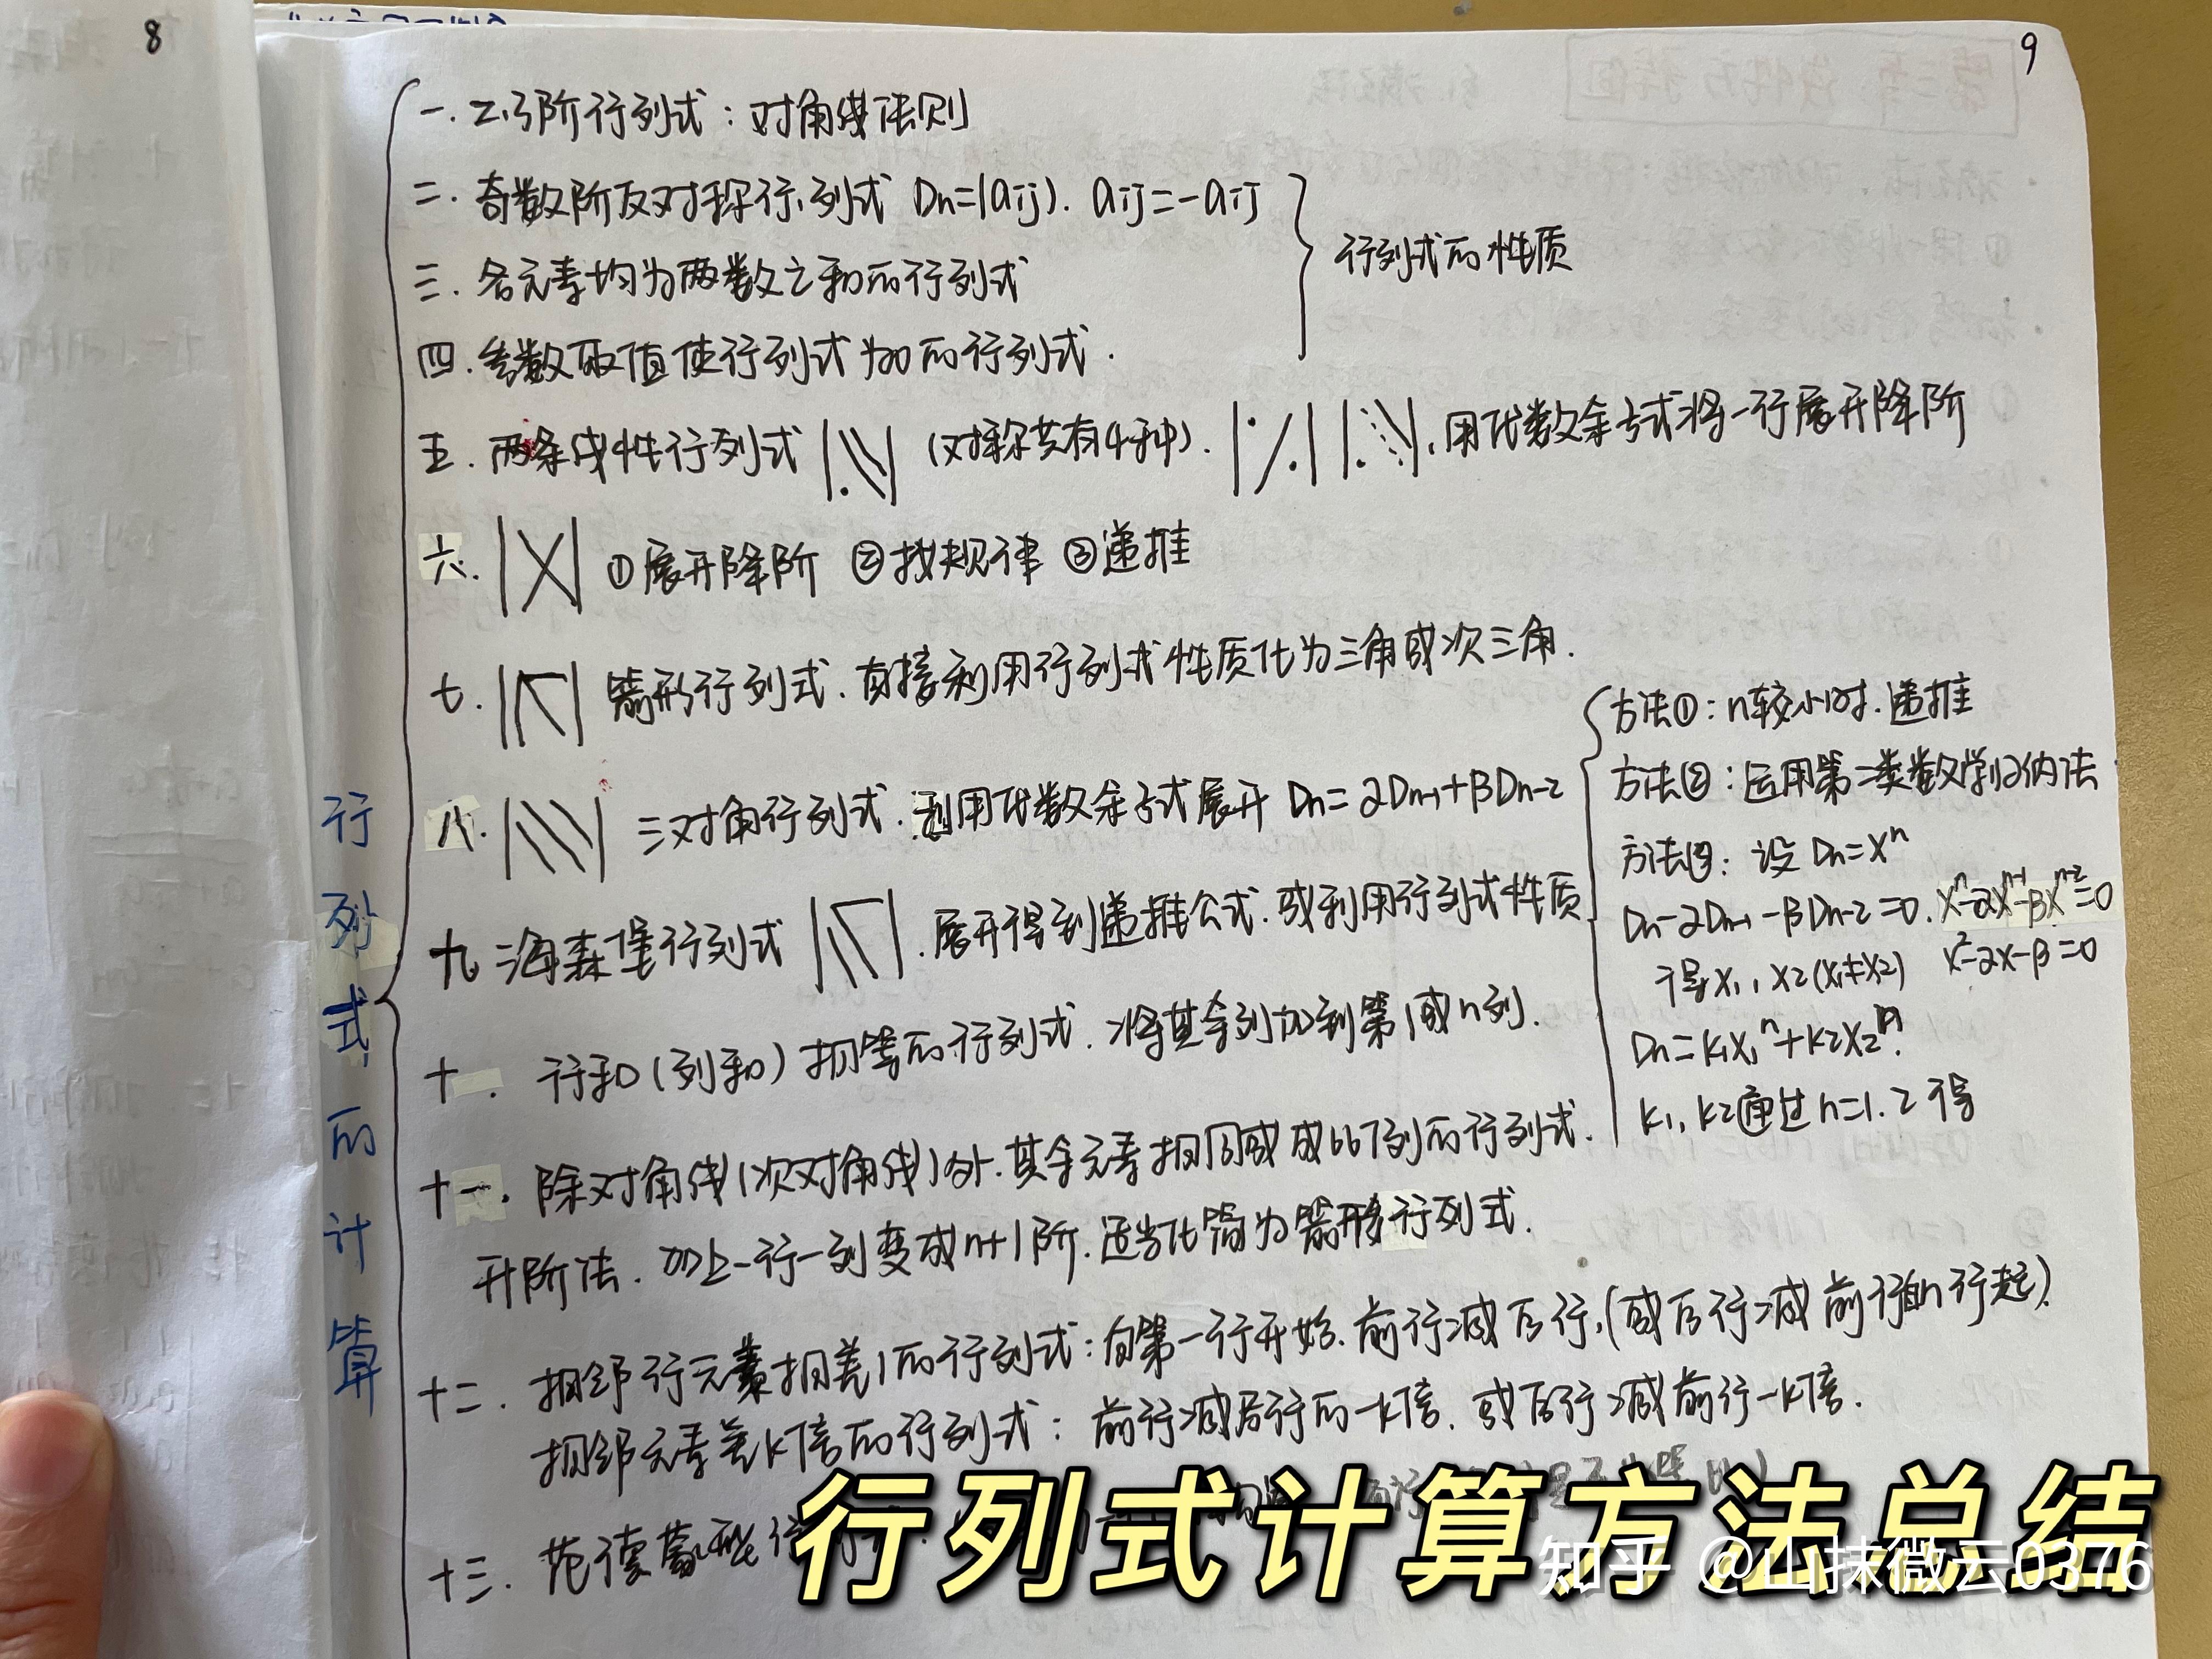 8
9
行列式的计算
一. 2.3阶行列式:对角线法则
二. 奇数阶反对称行列式 Dn=|aij). aij=-aij
三. 各元素均为两数之和的行列式
四. 参数取值使行列式为0的行列式.
行列式的性质
五. 两条线性行列式 (对称共有4种). 用代数余子式将一行展开降阶
六. ①展开降阶 ②找规律 ③递推
七. 箭形行列式. 直接利用行列式性质化为三角或次三角.
八. 三对角行列式. 利用代数余子式展开 Dn=αDn-1+βDn-2
方法①:n较小时.递推
方法②:运用第二类数学归纳法
方法③:设 Dn=xⁿ
Dn-αDn-1-βDn-2=0. xⁿ-αxⁿ⁻¹-βxⁿ⁻²=0
得x1, x2(x1≠x2) x²-αx-β=0
Dn=k1x1ⁿ+k2x2ⁿ
k1, k2通过n=1.2得
九 海森堡行列式 . 展开得到递推公式. 或利用行列式性质
十. 行和(列和)相等的行列式. 将其余列加到第1或n列.
十一. 除对角线(次对角线)外. 其余元素相同或成比例的行列式.
升阶法. 加上一行一列变成n+1阶. 适当化简为箭形行列式.
十二. 相邻行元素相差1的行列式:自第一行开始. 前行减后行,(或后行减前行自n行起).
相邻元素差k倍的行列式: 前行减后行的-k倍. 或后行减前行-k倍.
十三. 范德蒙
行列式计算方法总结
知乎 @山抹微云0376